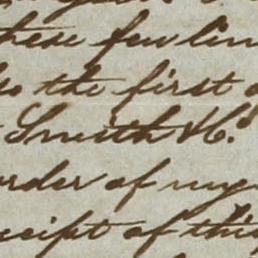 these few lin
to the first
Smith & Co.
order of my
receipt of this